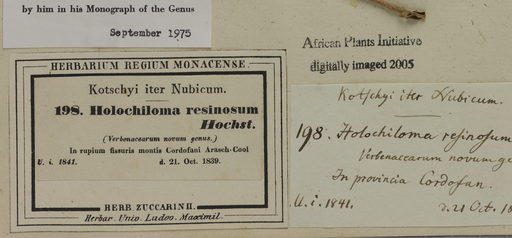 by him in his Monograph of the Genus
September 1975
African Plants Initiative
digitally imaged 2005
HERBARIUM REGIUM MONACENSE.
Kotschyi iter Nubicum.
198. Holochiloma resinosum
Hochst.
(Verbenacearum novum genus.)
In rupium fissuris montis Cordofani Arasch-Cool
U. i. 1841. d. 21. Oct. 1839.
HERB. ZUCCARINII.
Herbar. Univ. Ludov. Maximil.
Kotschyi iter Nubicum.
198. Holochiloma resinosum
Verbenacearum novum
In provincia Cordofan.
U. i. 1841. d. 21 Oct. 18